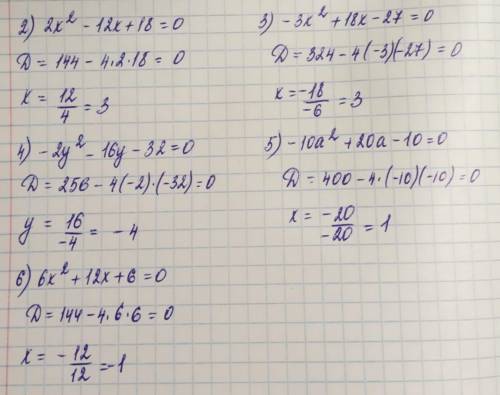 2) 2x² - 12x + 18 = 0
D = 144 - 4·2·18 = 0
x = 12/4 = 3
3) -3x² + 18x - 27 = 0
D = 324 - 4(-3)(-27) = 0
x = -18/-6 = 3
4) -2y² - 16y - 32 = 0
D = 256 - 4(-2)·(-32) = 0
y = 16/-4 = -4
5) -10a² + 20a - 10 = 0
D = 400 - 4·(-10)(-10) = 0
x = -20/-20 = 1
6) 6x² + 12x + 6 = 0
D = 144 - 4·6·6 = 0
x = -12/12 = -1